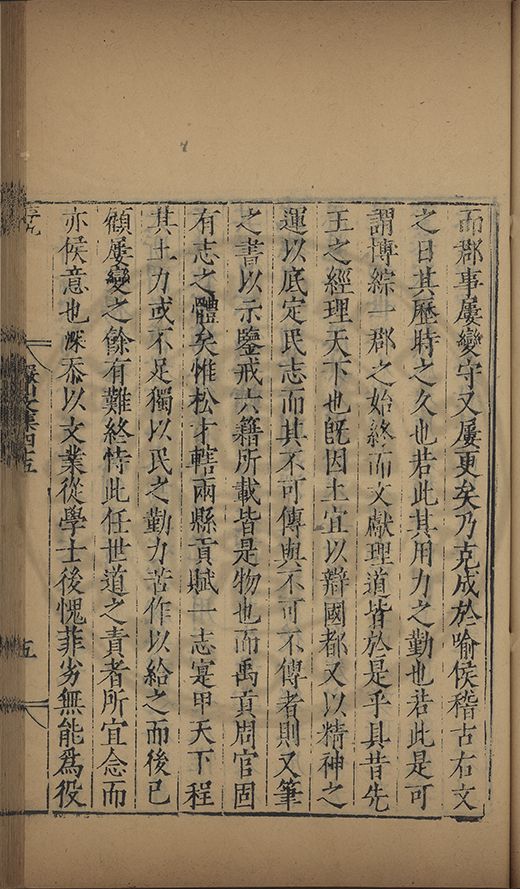 而郡事屢變守又屢更矣乃克成於喻侯稽古右文
之日其歷時之久也若此其用力之勤也若此是可
謂博綜一郡之始終而文獻理道皆於是乎具昔先
王之經理天下也旣因土宜以辯國都又以精神之
運以底定民志而其不可傳與不可不傳者則又筆
之書以示鑒戒六籍所載皆是物也而禹貢周官固
有志之體矣惟松才轄兩縣貢賦一志寔甲天下程
其土力或不足獨以民之勤力苦作以給之而後已
顧屢變之餘有難終恃此任世道之責者所宜念而
亦侯意也深忝以文業從學士後愧菲劣無能爲役
文集四十五
五